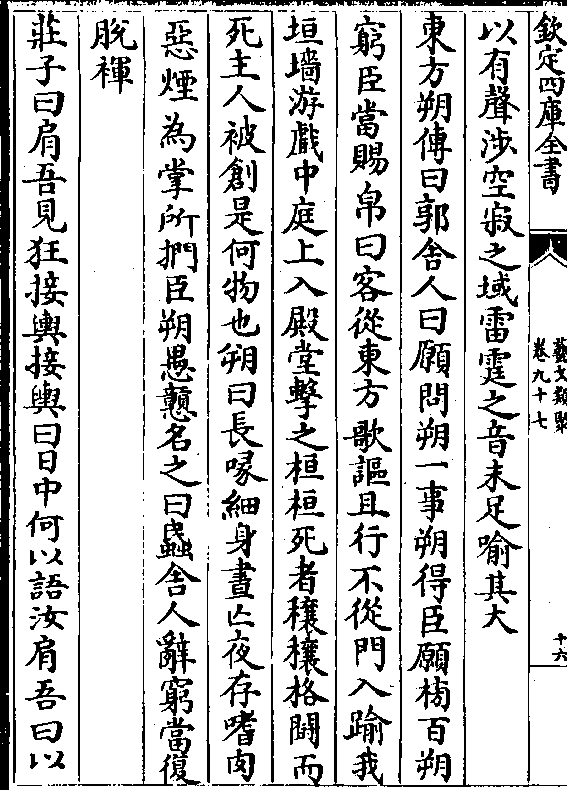 欽定四庫全書
藝文類聚
卷九十七
十六
以有聲涉空寂之域雷霆之音未足喻其大
東方朔傳曰郭舍人曰願問朔一事朔得臣願榜百朔
窮臣當賜帛曰客從東方歌謳且行不從門入踰我
垣墻游戲中庭上入殿堂擊之桓桓死者穰穰格鬪而
死主人被創是何物也朔曰長喙細身晝亡夜存嗜肉
惡煙為掌所捫臣朔愚戇名之曰蟁舍人辭窮當復
脫褌
莊子曰肩吾見狂接輿接輿曰日中何以語汝肩吾曰以